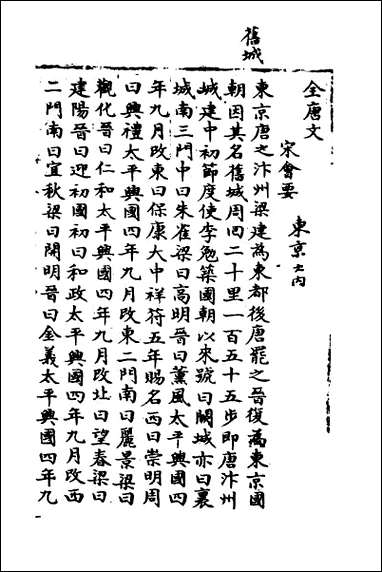 舊城
全唐文
宋會要
東京 大内
東京唐之汴州梁建為東都後唐罷之晉復為東京國
朝因其名舊城周四二十里一百五十五步即唐汴州
城建中初節度使李勉築國朝以來號曰闕城亦曰裏
城南三門中曰朱雀梁曰高明晉曰薰風太平興國四
年九月改東曰保康大中祥符五年賜名西曰崇明周
曰興禮太平興國四年九月改東二門南曰麗景梁曰
觀化晉曰仁和太平興國四年九月改北曰望春梁曰
建陽晉曰迎初國初曰和政太平興國四年九月改西
二門南曰宜秋梁曰開明晉曰金義太平興國四年九